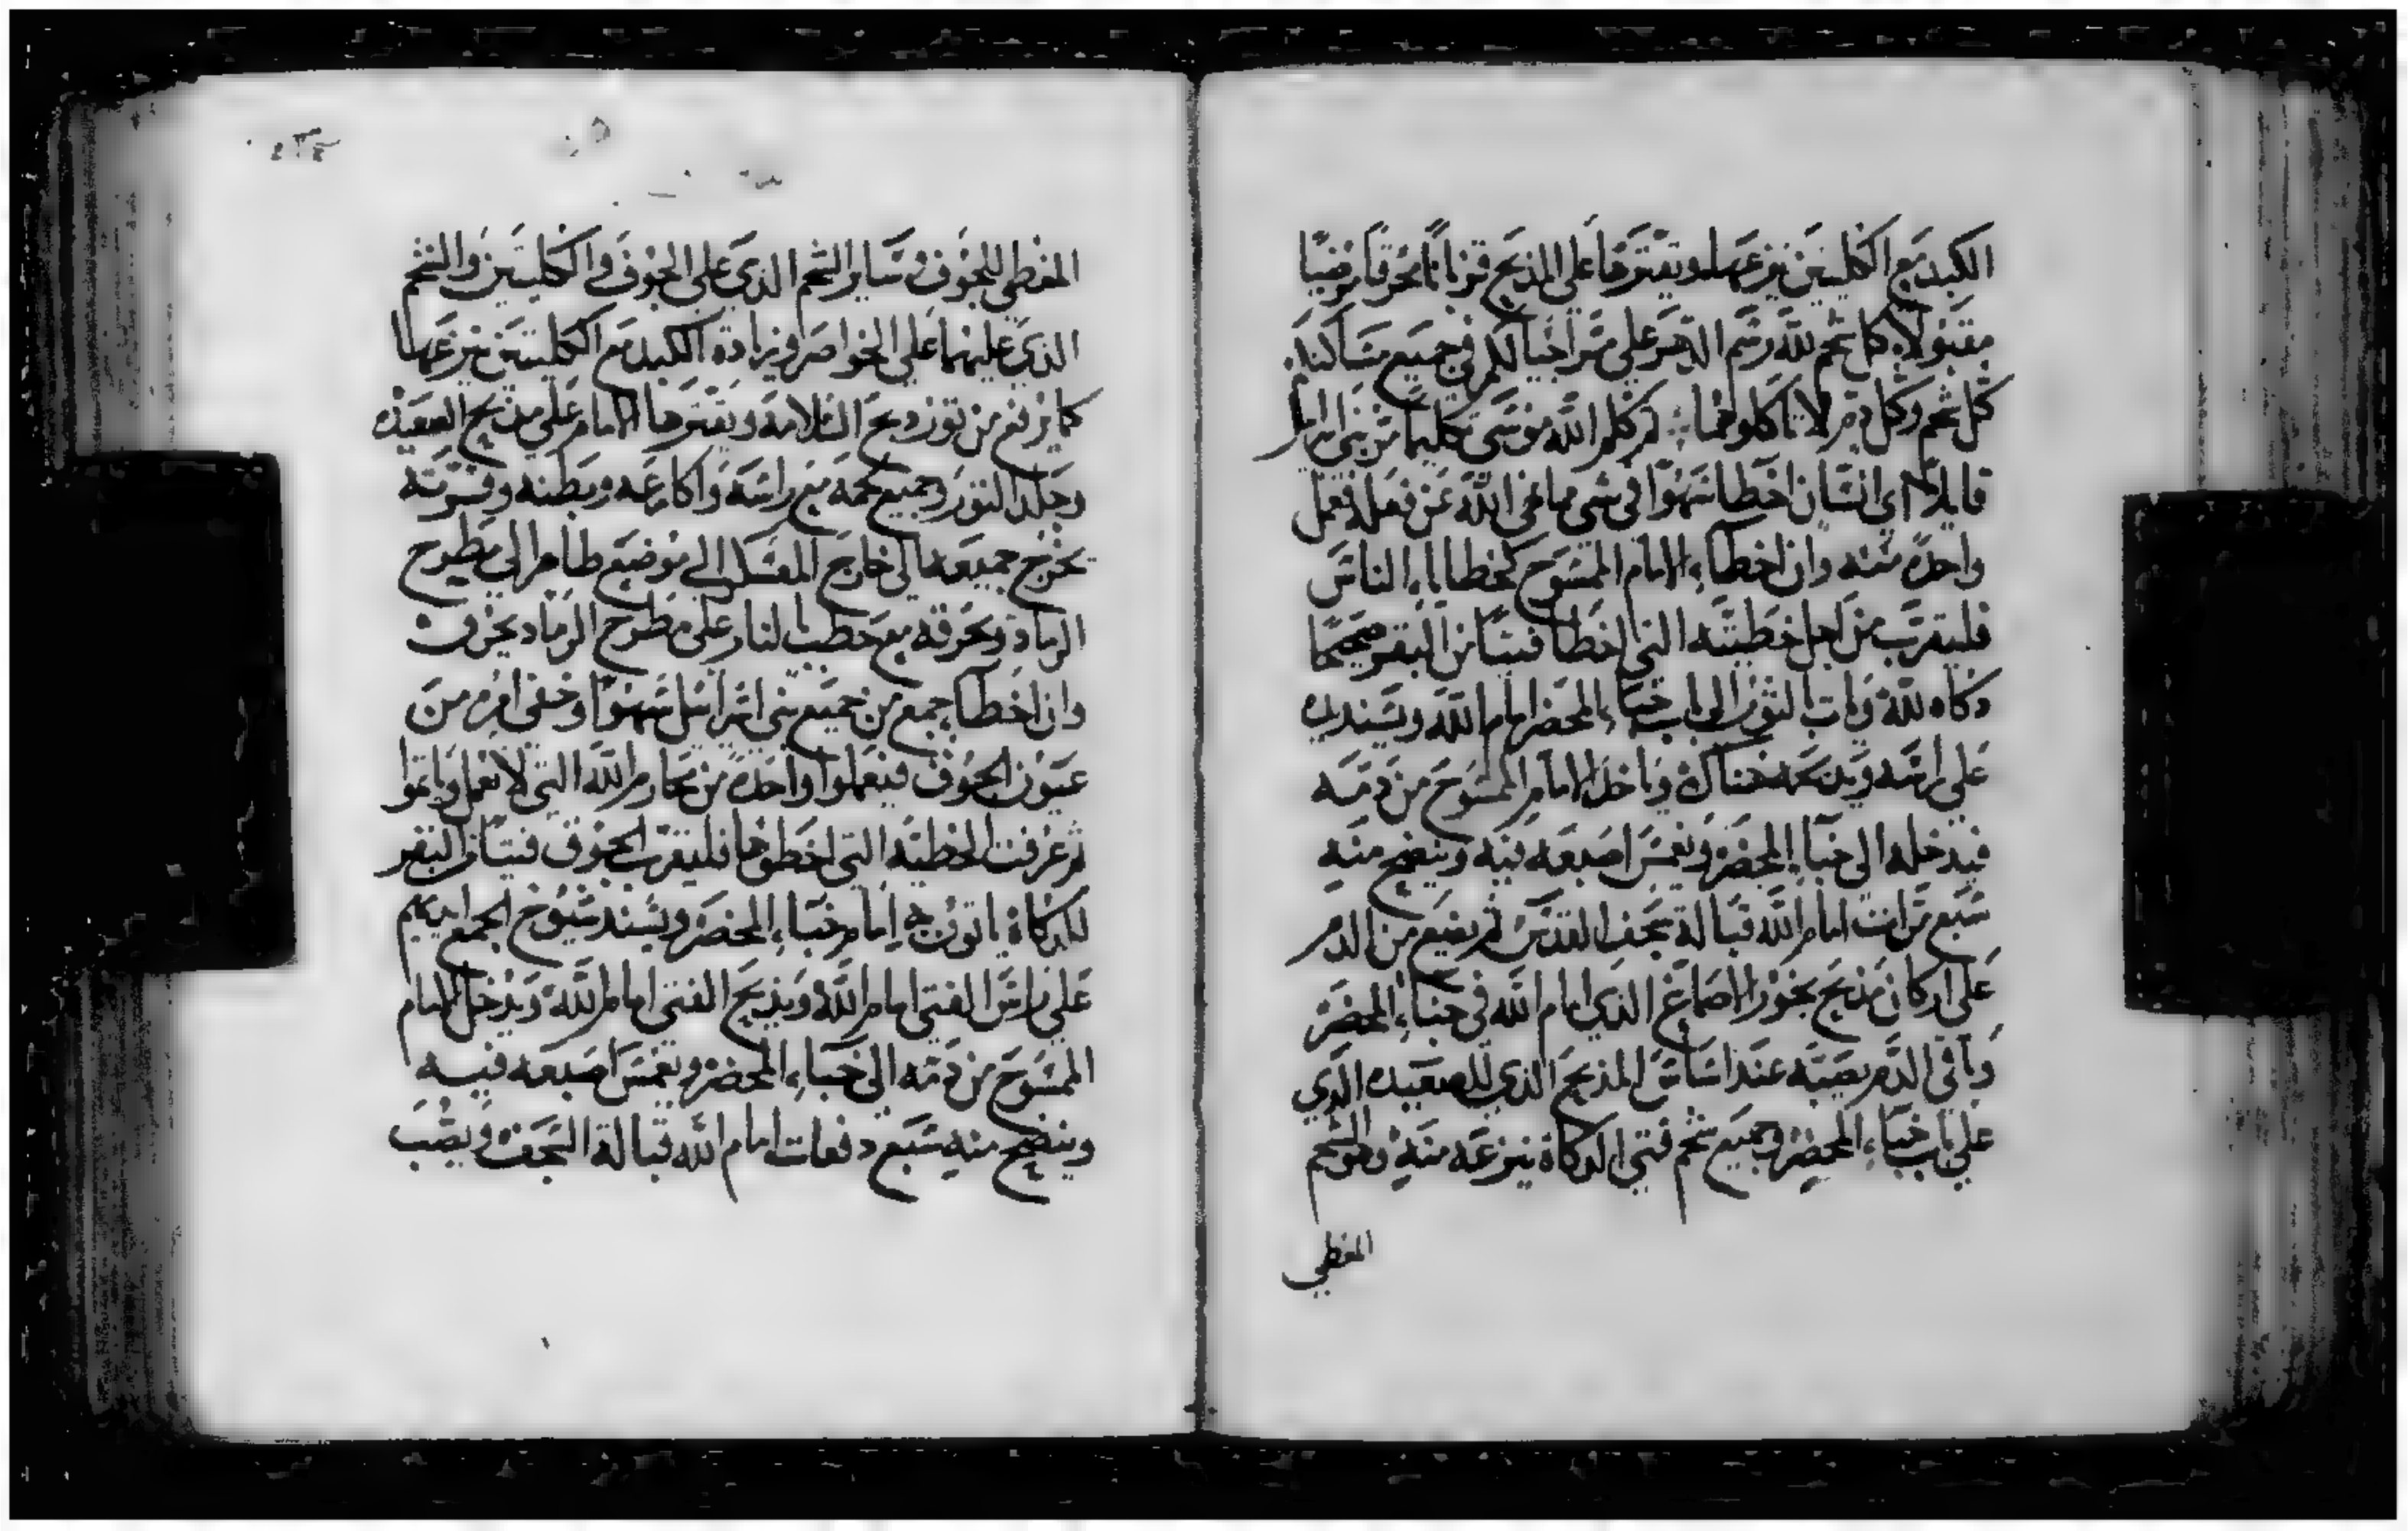 الكبد مع الكليتين ينزعها ويقترها على المذبح قربانًا محرقًا مرضيًا
مقبولا كل شحم لله رسم الدهر على مر اجيالكم في جميع مساكنكم
كل شحم وكل دم لا تاكلوهما ثم كلم الله موسى تكليمًا مر بني اسراييل
قايلًا اي انسان اخطا سهوًا في شي مما نهى الله عن فعله فعمل
واحدة منه وان اخطاء الامام الممسوح كخطاء الناس
فليقرب من اجل خطيته التي اخطا فتيًا من البقر صحيحًا
دكاه لله ويات بالثور الى باب خباء المحضر امام الله ويسند يده
على راسه ويذبحه هناك وياخذ الامام الممسوح من دمه
فيدخله الى خباء المحضر ويغمس اصبعه فيه وينضح منه
سبع مرات امام الله قبالة سجف القدس ثم يضع من الدم
على اركان مذبح بخور الاصماغ الذي امام الله في خباء المحضر
وباقي الدم يصبه عند اساس المذبح الذي للصعيده الذي
على باب خباء المحضر وجميع شحم فتي الدكاة ينزعه منه وهو الشحم
المغطي
المغطي للجوف وساير الشحم الذي على الجوف والكليتين والشحم
الذي عليهما على الخواصر وزيادة الكبد مع الكليتين ينزعها
كما يرفع من ثور ذبح السلامه ويقترها الامام على مذبح الصعيده
وجلد الثور وجميع لحمه مع راسه واكارعه وبطنه وفرثه
يخرج جميعها الى خارج المعسكر الى موضع طاهر الى مطرح
الرماد ويحرقه مع حطب بالنار على مطرح الرماد يحرق
وان اخطا جمع من جميع بني اسراييل سهوًا وخفي امر من
عيون الجوق فيعملوا واحدة من محارم الله التي لا تعمل وياثموا
ثم عرفت الخطية التي اخطوها فليقرب الجوق فتيًا من البقر
للدكاة ياتون به امام خباء المحضر ويسند شيوخ الجمع ايديهم
على راس الفتي امام الله ويذبح الفتي امام الله ويدخل الامام
الممسوح من دمه الى خباء المحضر ويغمس اصبعه فيه
وينضح منه سبع دفعات امام الله قبالة السجف ويصب